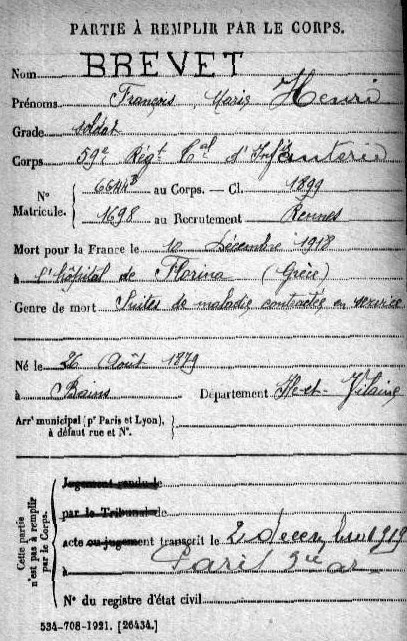 PARTIE À REMPLIR PAR LE CORPS.
Nom BREVET
Prénoms François Marie Henri
Grade soldat
Corps 59e Régt Cal d'Infanterie
N° Matricule. 6644B au Corps. — Cl. 1899
1698 au Recrutement Rennes
Mort pour la France le 10 Décembre 1918
à l'hôpital de Florina (Grèce)
Genre de mort Suites de maladie contractée en service
Né le 26 Août 1879
à Bains Département Ille-et-Vilaine
Arrt municipal (pr Paris et Lyon),
à défaut rue et N°.
Cette partie n'est pas à remplir par le Corps.
Jugement rendu le
par le Tribunal de
acte ou jugement transcrit le 2 décembre 1919
à Paris 3me ar
N° du registre d'état civil
534-708-1921. [26434.]